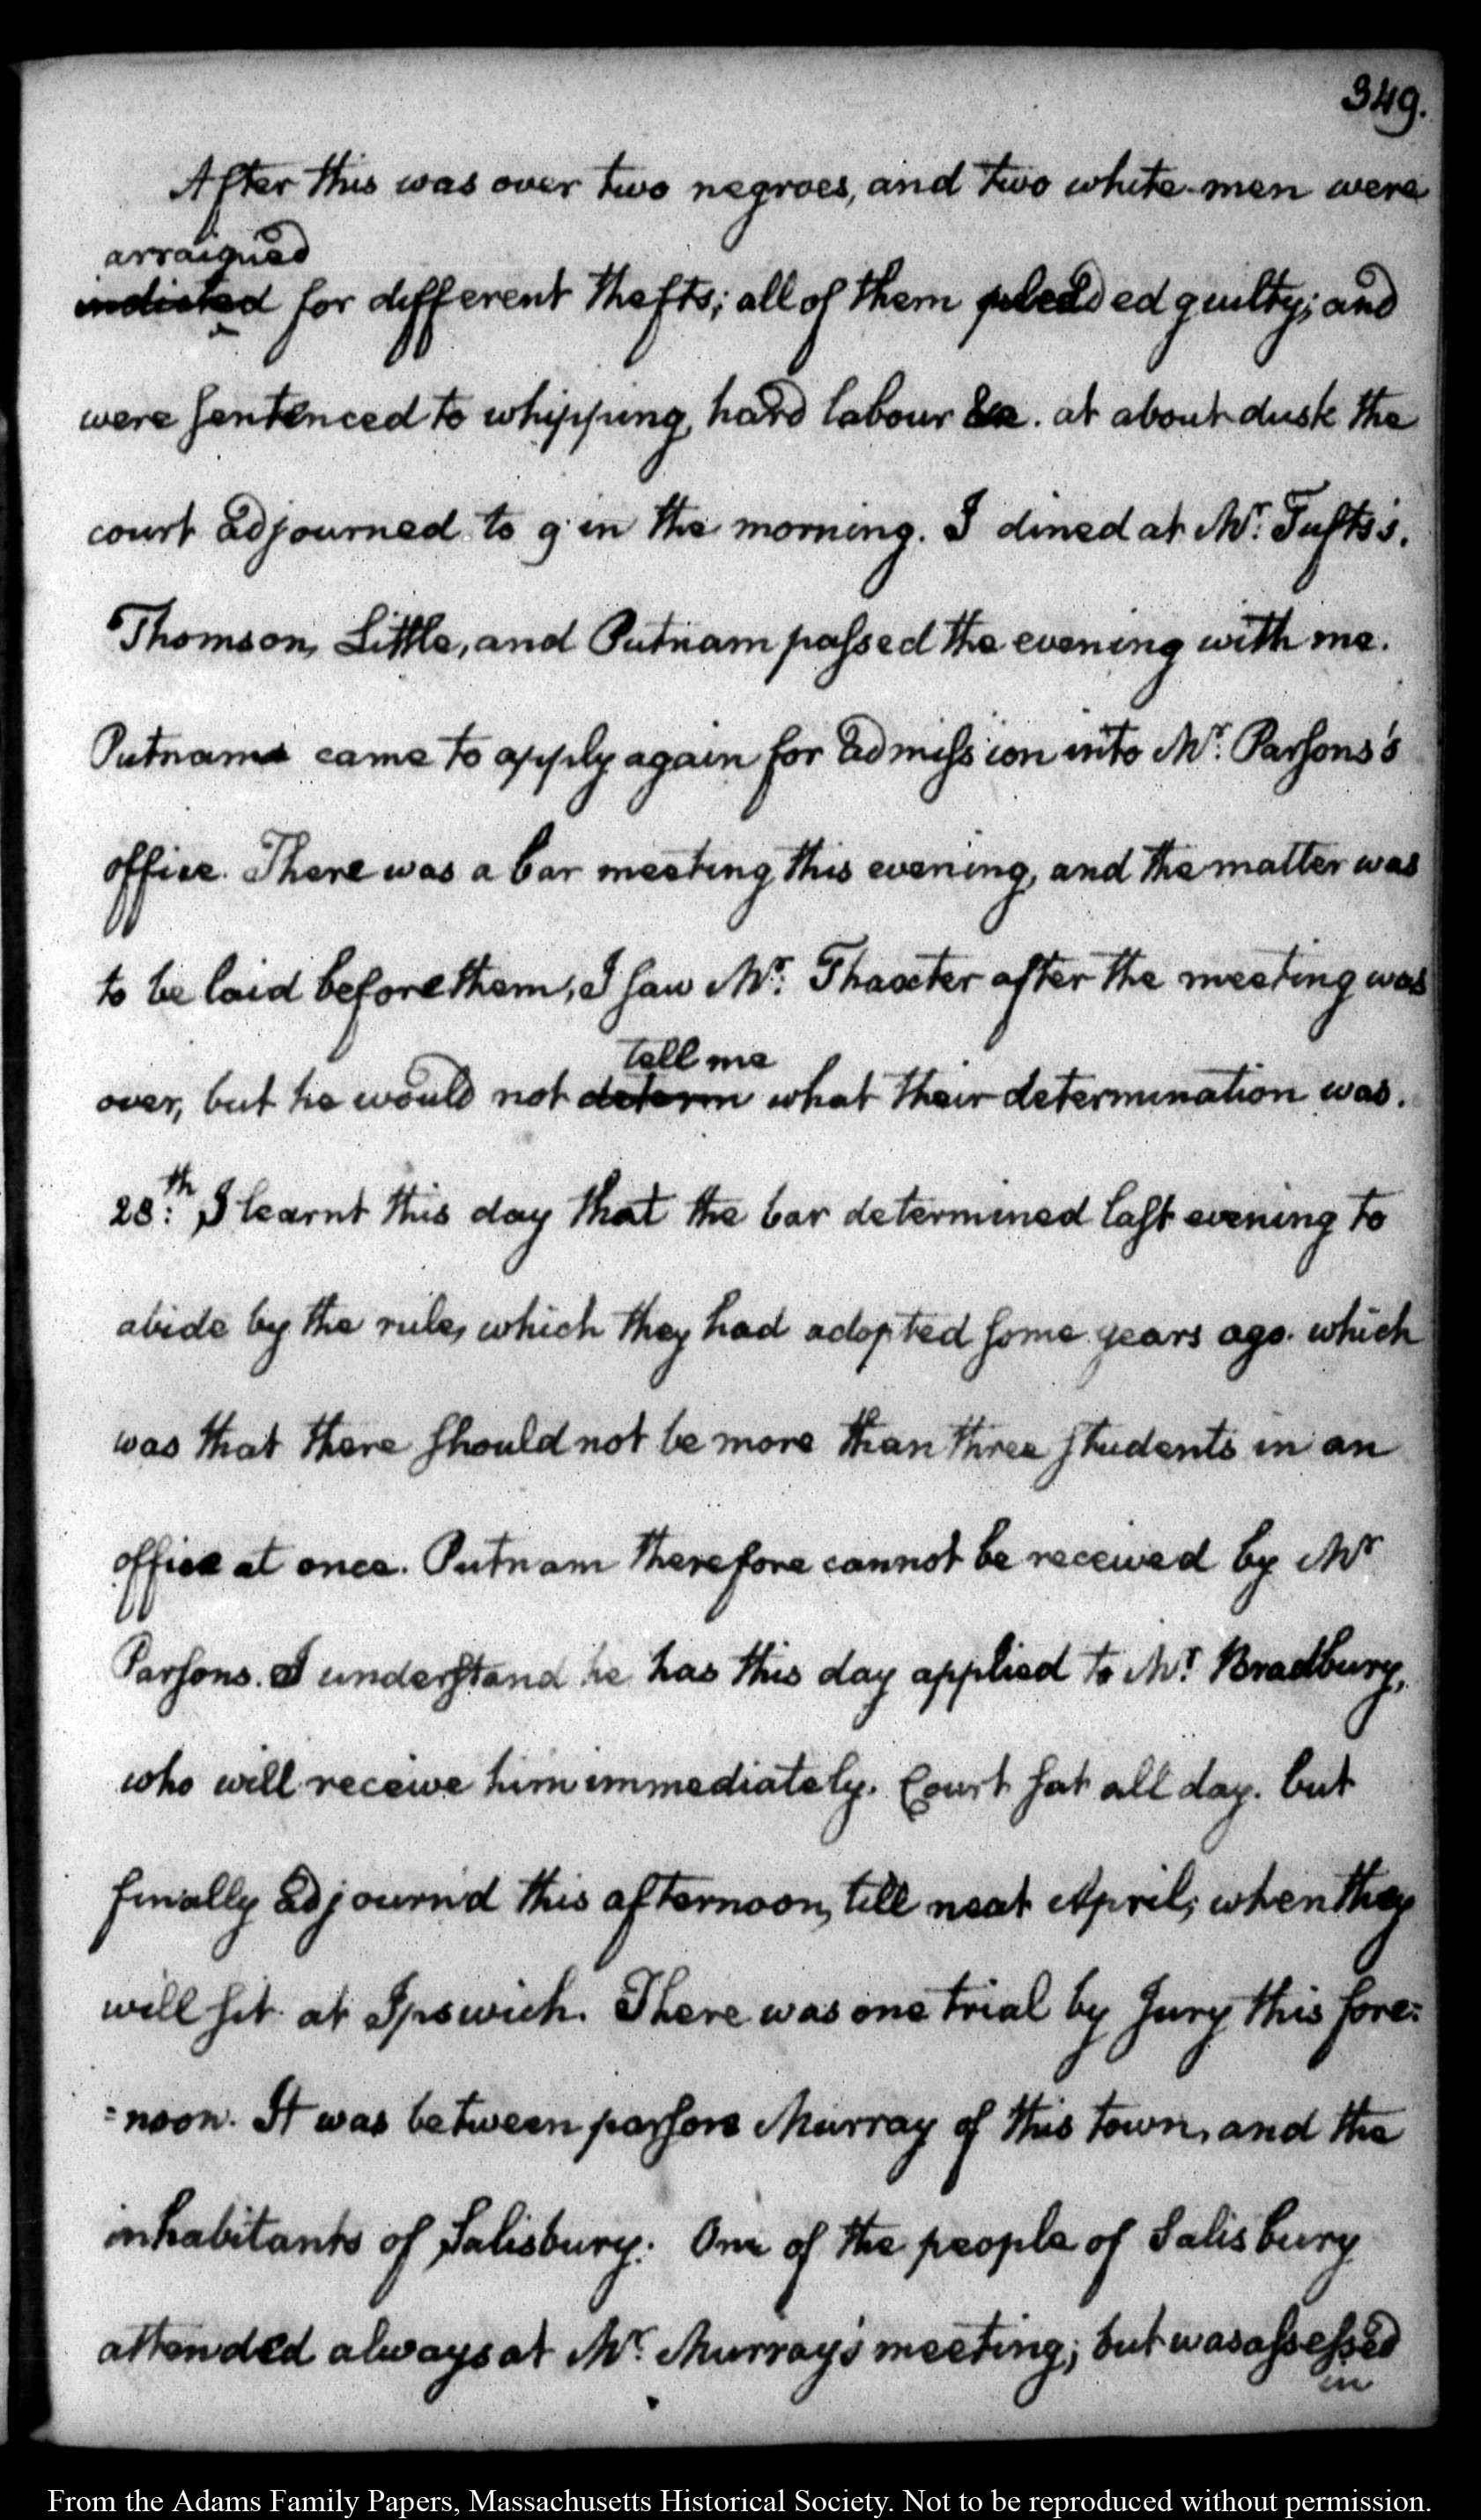 349.
After this was over two negroes, and two white men were
arraigned
indicted for different thefts; all of them pleaded guilty; and
were sentenced to whipping, hard labour &c. at about dusk the
court adjourned to 9 in the morning. I dined at Mr. Tufts's.
Thomson, Little, and Putnam passed the evening with me.
Putnam came to apply again for admission into Mr. Parsons's
office. There was a bar meeting this evening, and the matter was
to be laid before them, I saw Mr. Thaxter after the meeting was
tell me
over, but he would not determ what their determination was.
28th: I learnt this day that the bar determined last evening to
abide by the rule, which they had adopted some years ago. which
was that there should not be more than three students in an
office at once. Putnam therefore cannot be received by Mr
Parsons. I understand he has this day applied to Mr. Bradbury,
who will receive him immediately. Court sat all day. but
finally adjourn'd this afternoon, till next April; when they
will sit at Ipswich. There was one trial by Jury this fore=
=noon. It was between parson Murray of this town, and the
inhabitants of Salisbury. One of the people of Salisbury
attended always at Mr. Murray's meeting; but was assessed
in
From the Adams Family Papers, Massachusetts Historical Society. Not to be reproduced without permission.